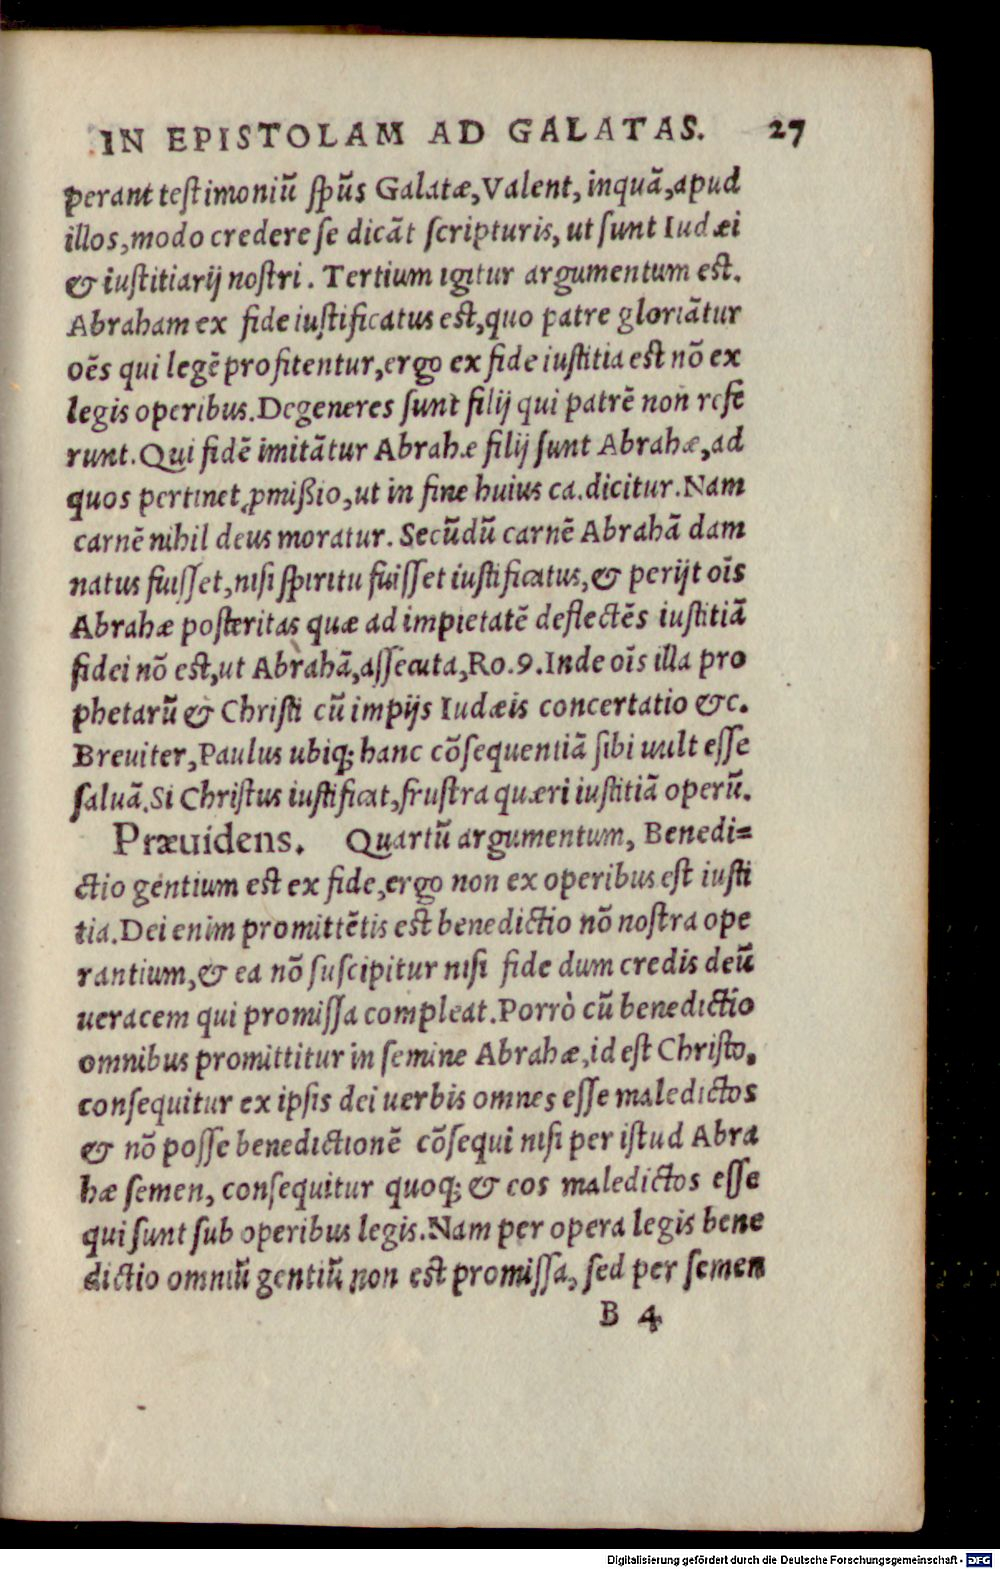 IN EPISTOLAM AD GALATAS. 27
perant testimoniũ sp̃us Galatæ, Valent, inquã, apud
illos, modo credere se dicãt scripturis, ut sunt Iudæi
& iustitiarij nostri. Tertium igitur argumentum est.
Abraham ex fide iustificatus est, quo patre gloriãtur
oẽs qui legẽ profitentur, ergo ex fide iustitia est nõ ex
legis operibus. Degeneres sunt filij qui patrẽ non refe
runt. Qui fidẽ imitãtur Abrahæ filij sunt Abrahæ, ad
quos pertinet ꝓmißio, ut in fine huius ca. dicitur. Nam
carnẽ nihil deus moratur. Secũdũ carnẽ Abrahã dam
natus fuisset, nisi spiritu fuisset iustificatus, & perijt oĩs
Abrahæ posteritas quæ ad impietatẽ deflectẽs iustitiã
fidei nõ est, ut Abrahã, assecuta, Ro. 9. Inde oĩs illa pro
phetarũ & Christi cũ impijs Iudæis concertatio &c.
Breuiter, Paulus ubiq; hanc cõsequentiã sibi uult esse
saluã. Si Christus iustificat, frustra quæri iustitiã operũ.
Præuidens. Quartũ argumentum, Benedi=
ctio gentium est ex fide, ergo non ex operibus est iusti
tia. Dei enim promittẽtis est benedictio nõ nostra ope
rantium, & ea nõ suscipitur nisi fide dum credis deũ
ueracem qui promissa compleat. Porrò cũ benedictio
omnibus promittitur in semine Abrahæ, id est Christo,
consequitur ex ipsis dei uerbis omnes esse maledictos
& nõ posse benedictionẽ cõsequi nisi per istud Abra
hæ semen, consequitur quoq; & eos maledictos esse
qui sunt sub operibus legis. Nam per opera legis bene
dictio omniũ gentiũ non est promissa, sed per semen
B 4
Digitalisierung gefördert durch die Deutsche Forschungsgemeinschaft - DFG